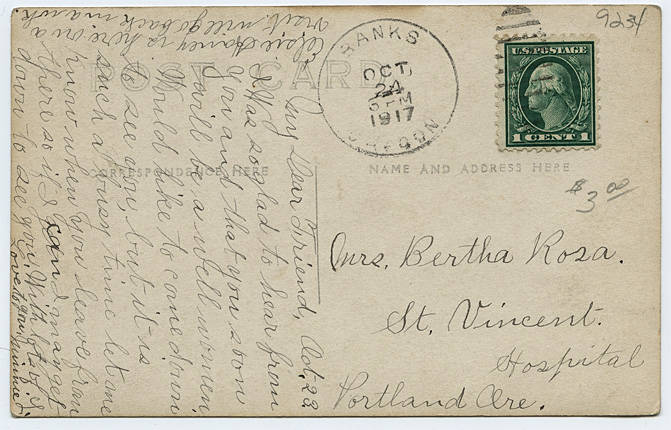 9234
POST CARD
BANKS
OCT
24
PM
1917
OREGON
U.S. POSTAGE
1 CENT 1
CORRESPONDENCE HERE
NAME AND ADDRESS HERE
$3.00
Mrs. Bertha Rosa.
St. Vincent.
Hospital
Portland Ore.
Oct 23
My Dear Friend,
I was so glad to hear from
you and that you soon
will be a well women.
Would like to come down
to see you but it is
such a busy time let me
know when you leave from
there so if I can manage
down to see you With lots of
Love to you
is here on a
visit. will go back